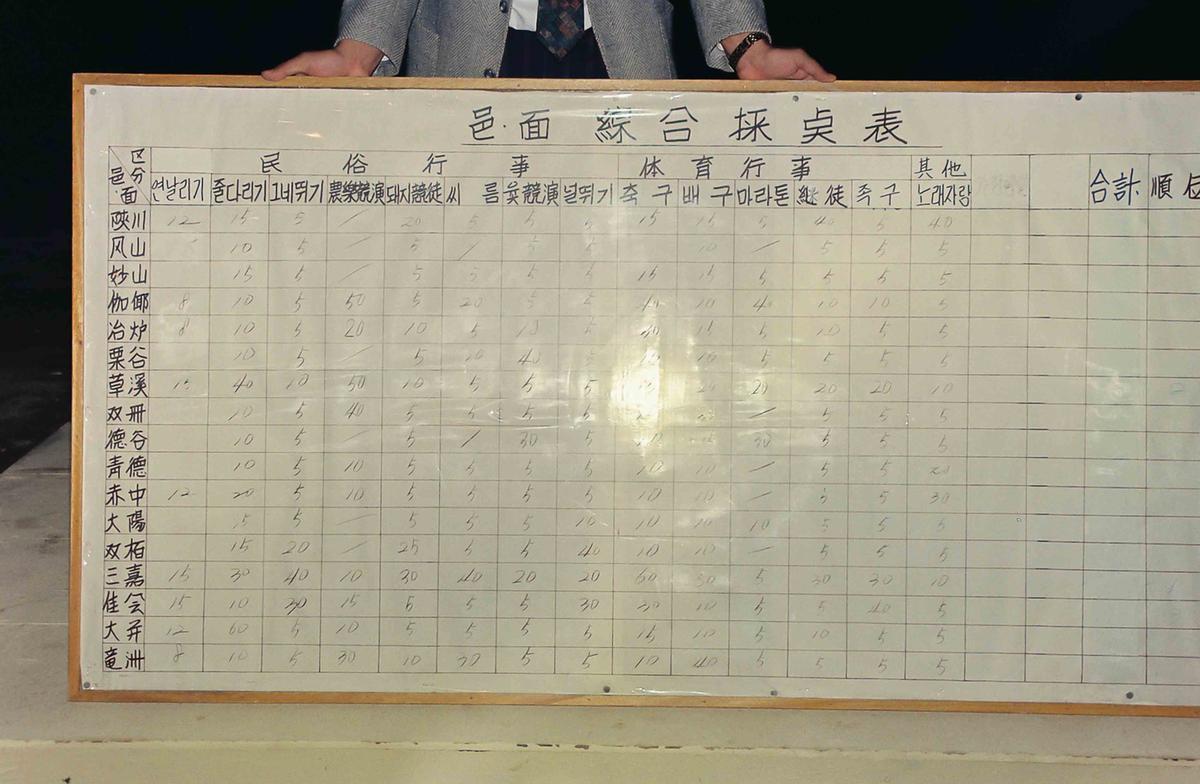 邑·面 綜合採点表
区分 邑面 民俗行事 体育行事 其他
연날리기 줄다리기 그네뛰기 農樂競演 돼지競徒 씨름 윷競演 널뛰기 축구 배구 마라톤 継徒 족구 노래자랑 合計 順位
陜川 12 15 5 / 20 5 5 5 15 15 5 40 5 40
风山 10 5 / 5 / 5 5 10 / 5 5 5
妙山 15 5 / 5 5 5 5 15 15 5 5 5 5
伽倻 8 10 5 50 5 20 5 5 40 10 40 10 10 5
冶炉 8 10 5 20 10 5 10 5 40 15 5 10 5 5
栗谷 10 5 / 5 10 40 5 10 10 5 5 5 5
草溪 15 40 10 50 10 5 5 5 20 20 20 20 10
双冊 10 5 40 5 5 5 5 / 5 5 5
德谷 10 5 / 5 / 30 5 10 30 5 5 5
靑德 10 5 10 5 5 5 5 10 10 / 5 5 20
赤中 12 20 5 10 5 5 5 5 10 10 / 5 5 30
大陽 15 5 / 5 5 5 10 10 10 10 5 5 5
双栢 15 20 / 25 5 5 40 10 10 / 5 5 5
三嘉 15 30 40 10 30 40 20 20 60 30 5 30 30 10
佳会 15 10 30 15 5 5 5 30 30 10 5 5 40 5
大并 12 60 5 10 5 5 5 5 15 10 5 10 5 5
竜洲 8 10 5 30 10 30 5 5 10 40 5 5 5 5